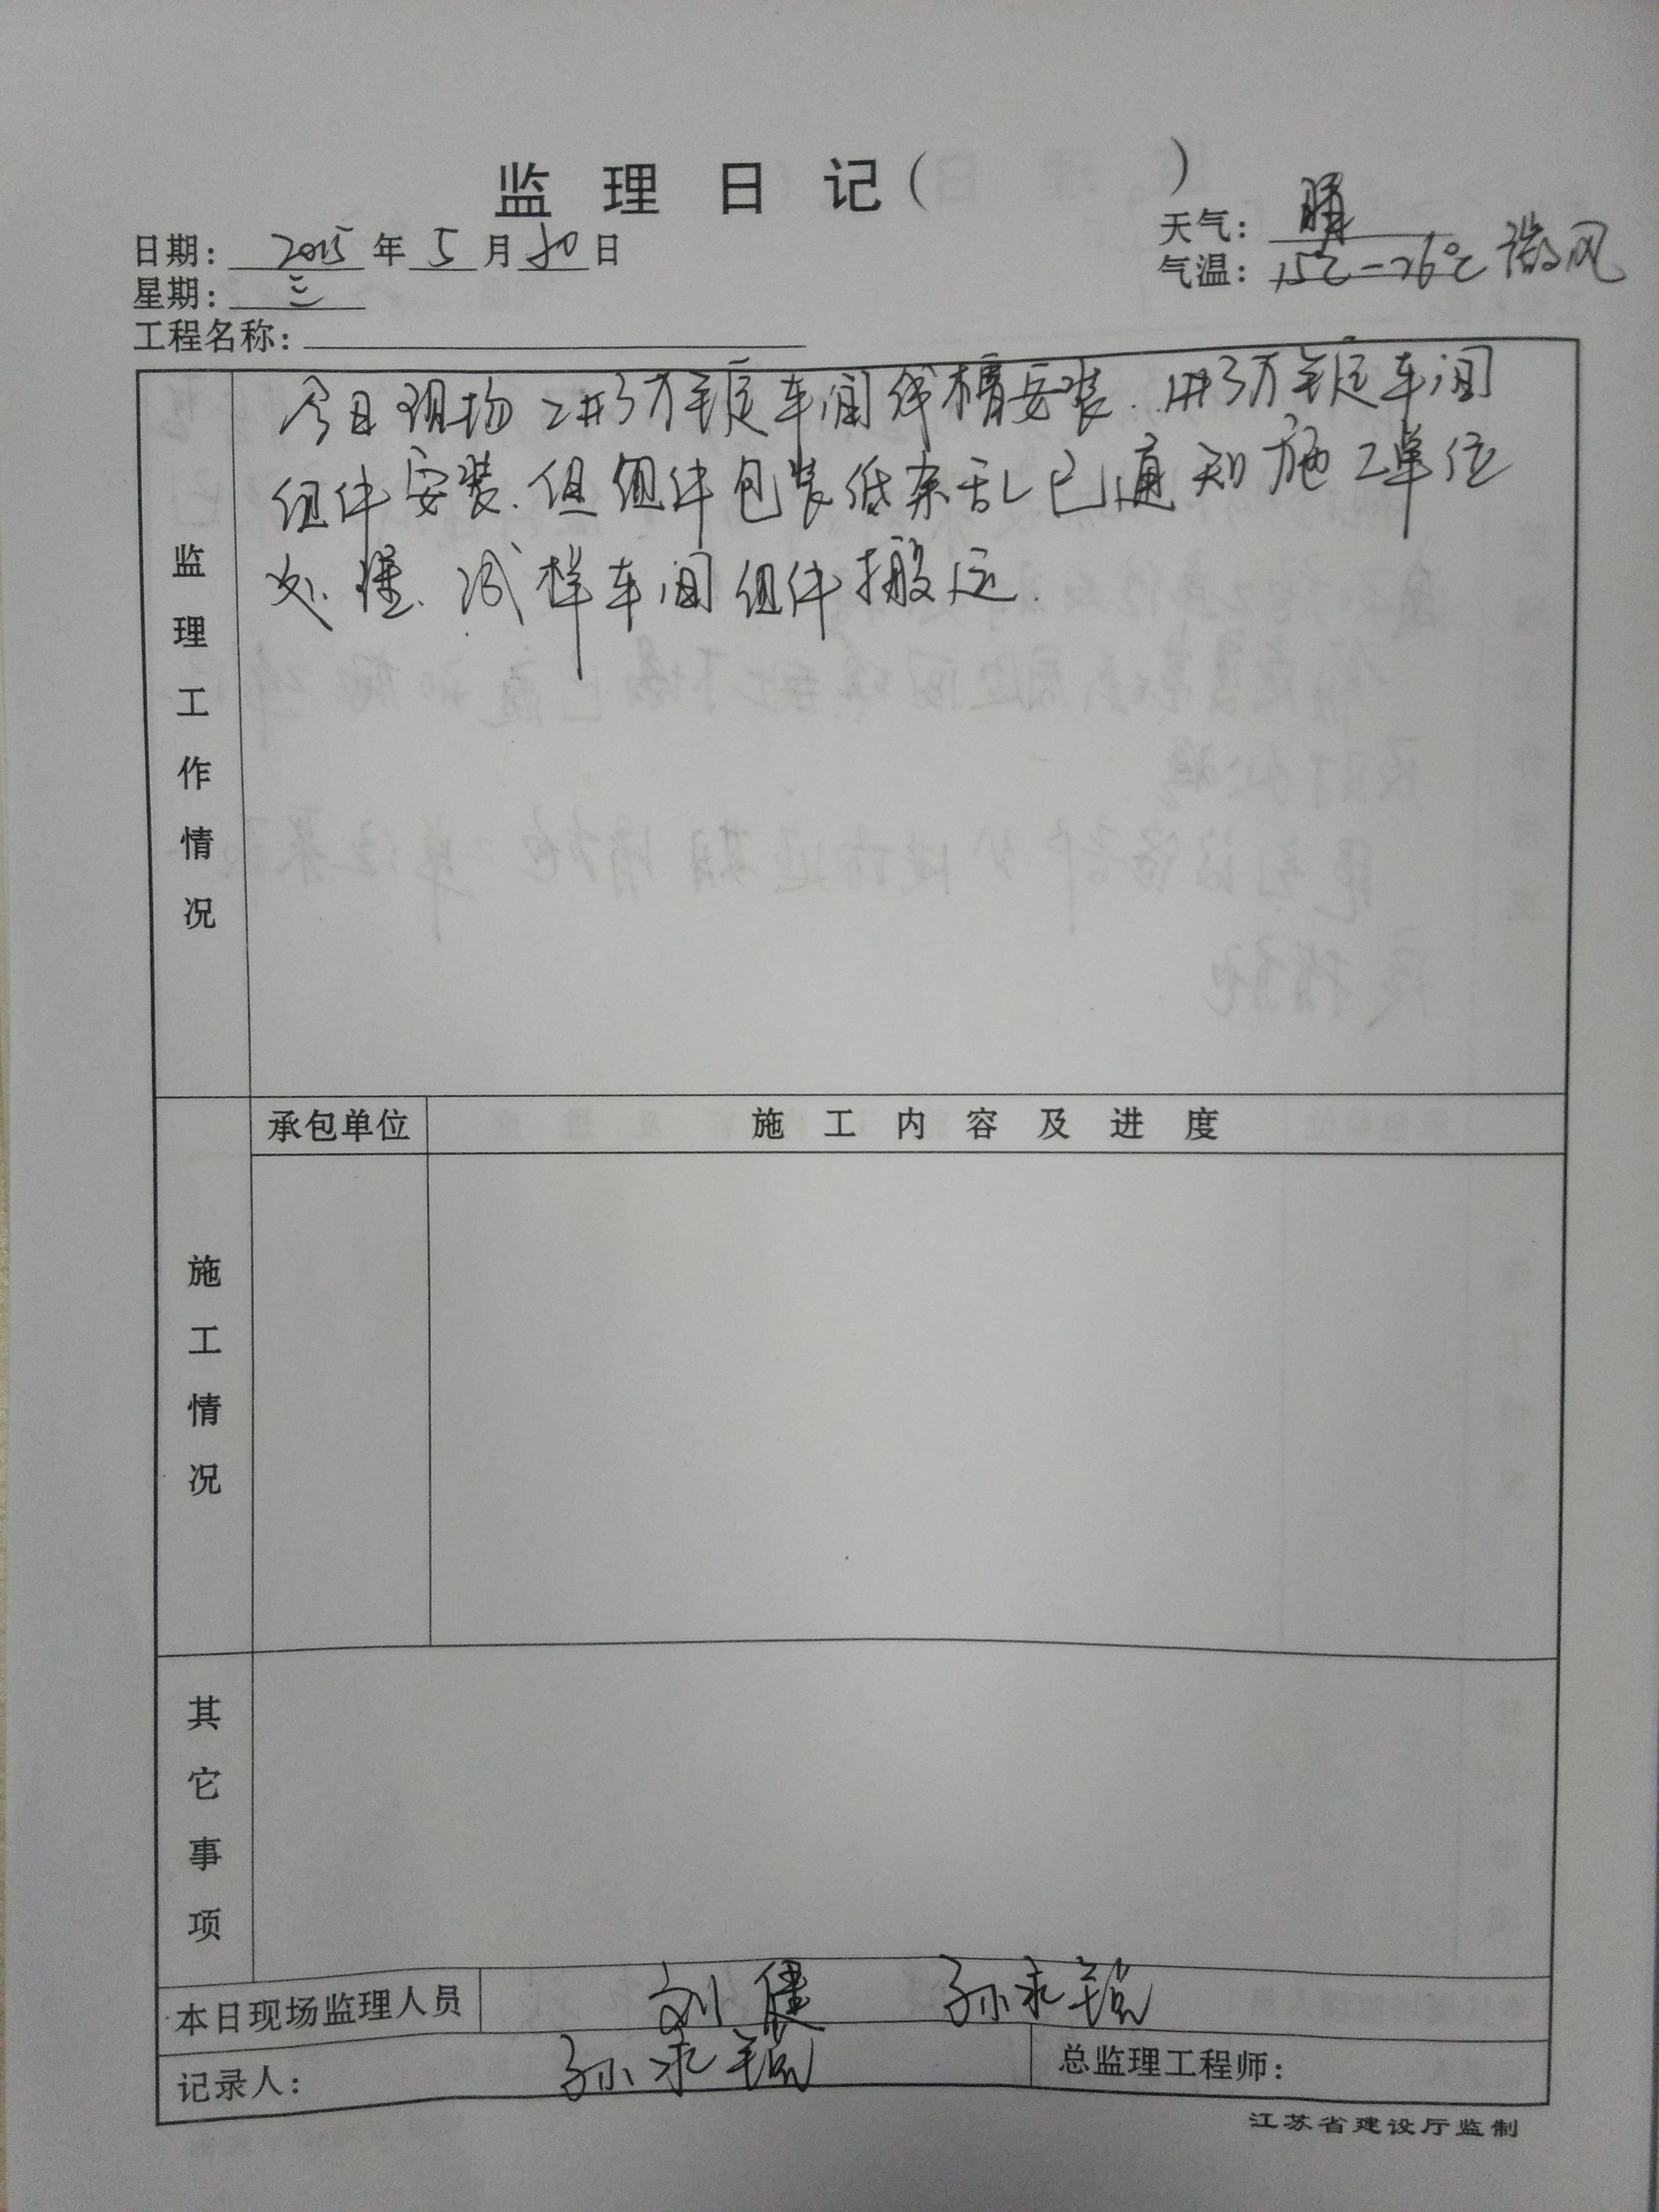 监理日记（ ）
日期：2015年5月20日
天气：晴
星期：三
气温：15℃-26℃ 微风
工程名称：
监理工作情况
今日现场2#3万锭车间线槽安装.1#3万锭车间
组件安装.但组件包装纸杂乱已通知施工单位
处理.试样车间组件搬运.
承包单位
施工内容及进度
施工情况
其它事项
本日现场监理人员 刘健 孙永锐
记录人：孙永锐
总监理工程师：
江苏省建设厅监制